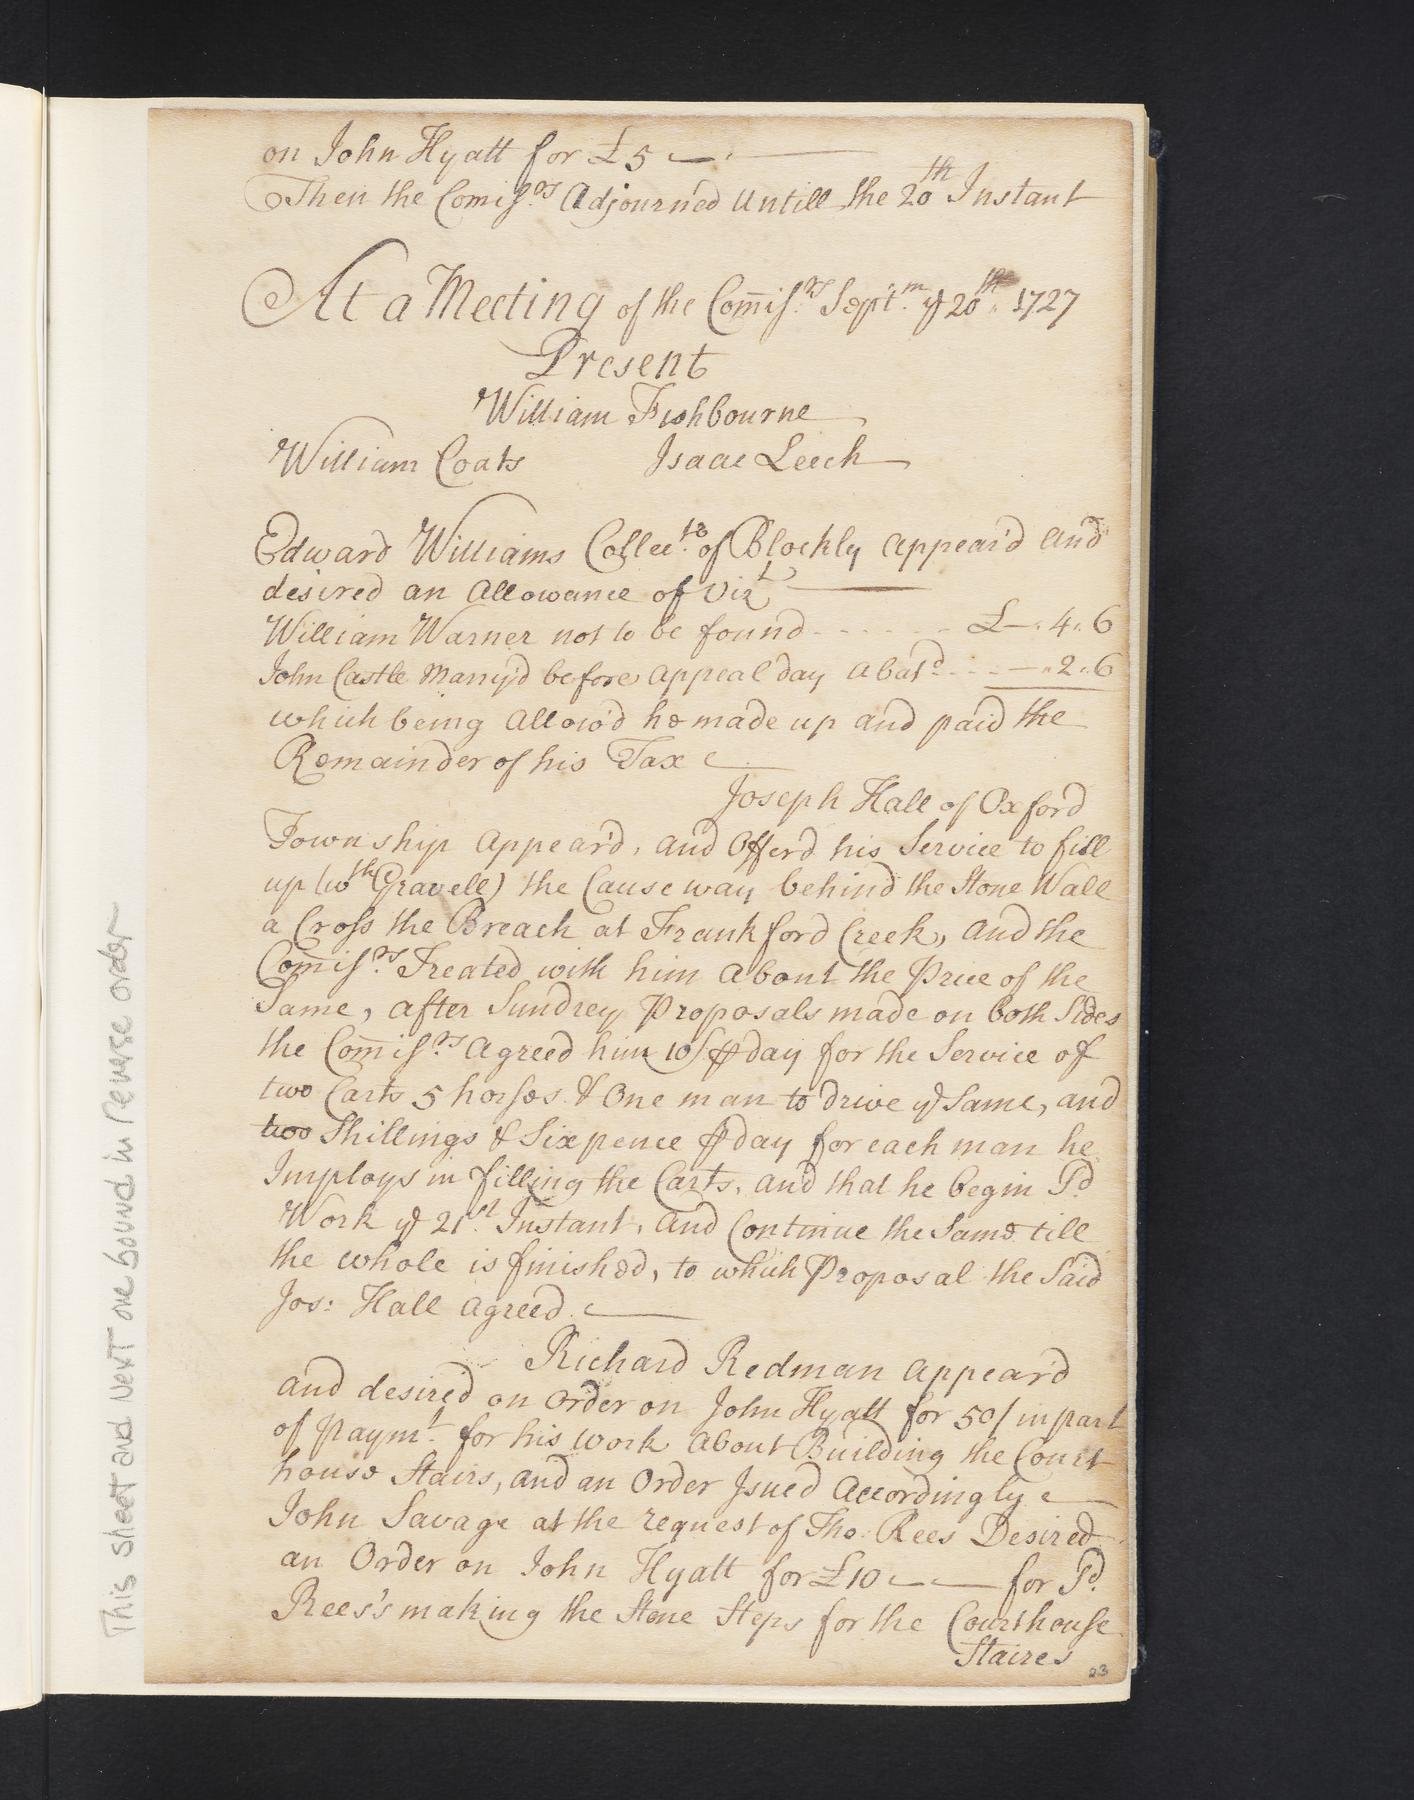 on John Hyatt for £5 —
Then the Comiss.rs Adjourn'ed Untill the 20th Instant
At a Meeting of the Com̅iss.rs Sept.m ye 20th 1727
Present
William Fishbourne
William Coats Isaac Leech
Edward Williams Collec.to of Blockly appear'd and
desired an Allowance of Vizt
William Warner not to be found - - - - - - £—. 4. 6
John Castle Marry'd before appeal day abatd. - - - —. 2. 6
which being Allow'd he made up and paid the
Remainder of his Tax
Joseph Hall of Oxford
Township appear'd, and Offerd his Service to fill
up (wth Gravell) the Causeway behind the Stone Wall
a Cross the Breach at Frankford Creek, and the
Com̅iss.rs Treated with him about the Price of the
Same, after Sundrey Proposals made on both Sides
the Com̅iss.rs agreed him 10/ ⅌ day for the Service of
two Carts 5 horses & One man to drive ye Same, and
two Shillings & Sixpence ⅌ day for each man he
Imploys in filling the Carts, and that he begin Sd
Work ye 21.st Instant, and Continue the Same till
the whole is finished, to which Proposal the Said
Jos: Hall agreed
Richard Redman appear'd
and desired an order on John Hyatt for 50/ in part
of paymt. for his work about Building the Court
house Stairs, and an Order Isued Accordingly
John Savage at the request of Tho. Rees Desired
an Order on John Hyatt for £10 — — for Sd.
Rees's making the Stone Steps for the Courthouse
Staires
23
This sheet and next one bound in reverse order